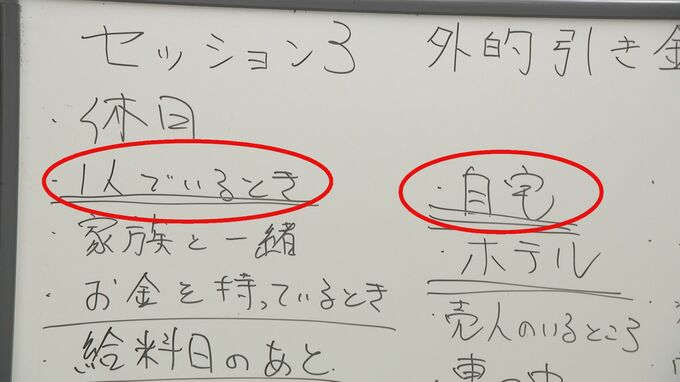 セッション3 外的引き金
・休日
・1人でいるとき
・家族と一緒
・お金を持っているとき
給料日のあと
・自宅
・ホテル
売人のいるところ
車の中